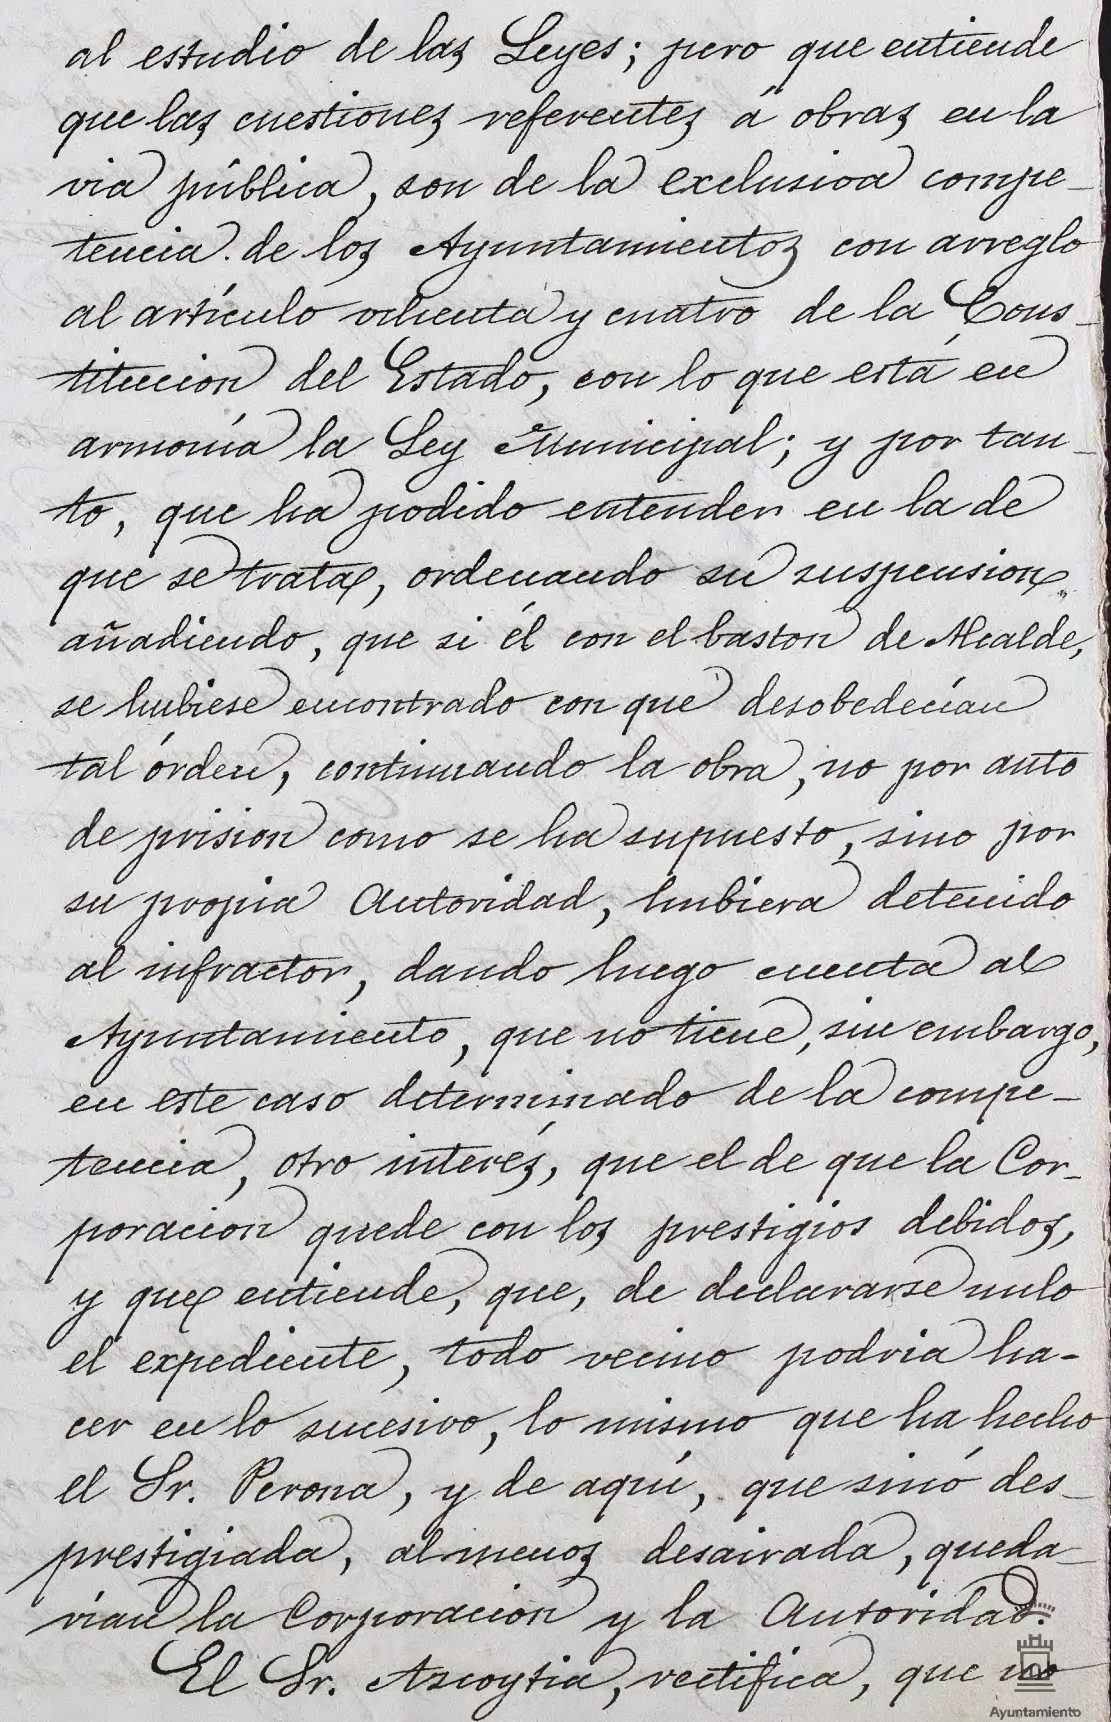 al estudio de las Leyes; pero que entiende
que las cuestiones referentes á obras en la
via pública, son de la exclusiva compe-
tencia. de los Ayuntamientos con arreglo
al artículo ochenta y cuatro de la Cons-
titucion del Estado, con lo que está en
armonía la Ley Municipal; y por tan-
to, que ha podido entender en la de
que se trata, ordenando su suspension,
añadiendo, que si él con el baston de Alcalde,
se hubiese encontrado con que desobedecían
tal órden, continuando la obra, no por auto
de prision como se ha supuesto, sino por
su propia Autoridad, hubiera detenido
al infractor, dando luego cuenta al
Ayuntamiento, que no tiene, sin embargo,
en este caso determinado de la compe-
tencia, otro interés, que el de que la Cor-
poracion quede con los prestigios debidos,
y que entiende, que, de declararse nulo
el expediente, todo vecino podria ha-
cer en lo sucesivo, lo mismo que ha hecho
el Sr. Perona, y de aquí, que sinó des-
prestigiada, al menos desairada, queda-
rian la Corporacion y la Autoridad.
El Sr. Ascoytia, rectifica, que no
Ayuntamiento